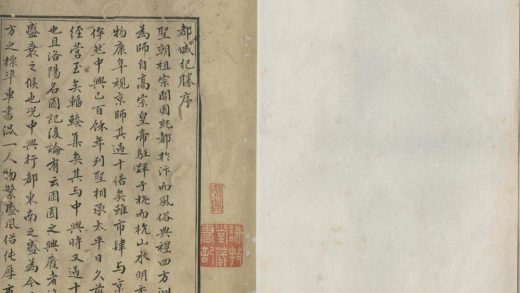 都城紀勝序
聖朝祖宗開國就都於汴而風俗典禮四方
為師自高宗皇帝駐蹕于杭而杭山水明秀
物康阜視京師其過十倍矣雖市肆與京
侔然中興已百餘年列聖相承太平日久前
經營至矣輻輳集矣其與中興時又過十
也且洛陽名園記後論有云園圃之興廢者
盛衰之候也況中興行都東南之盛為今
方之標準車書混一人物繁盛風俗純厚市
謙牧堂藏書記